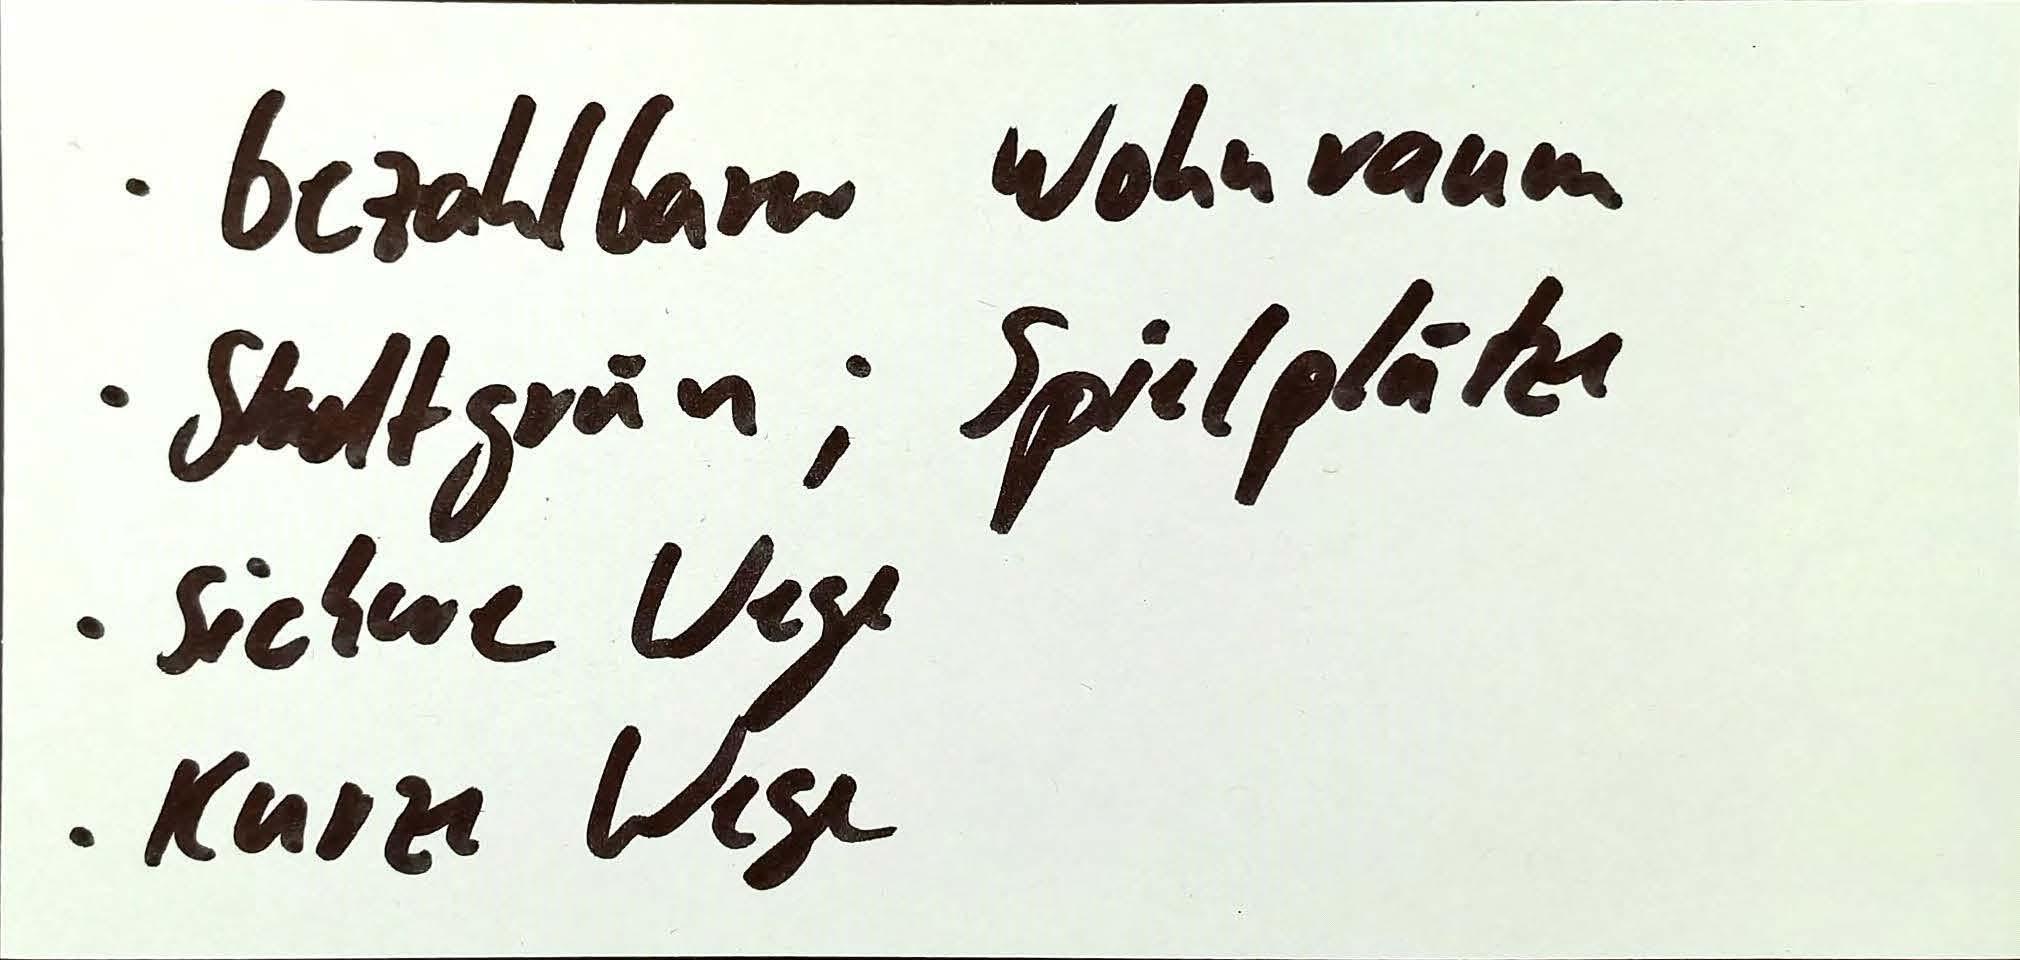 · bezahlbarer Wohnraum
· Stadtgrün ; Spielplätze
· Sichere Wege
· Kurze Wege